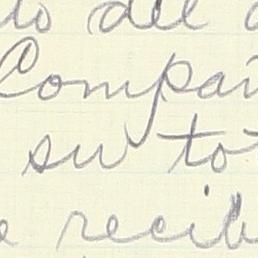 to del
Compañ
su to
recib